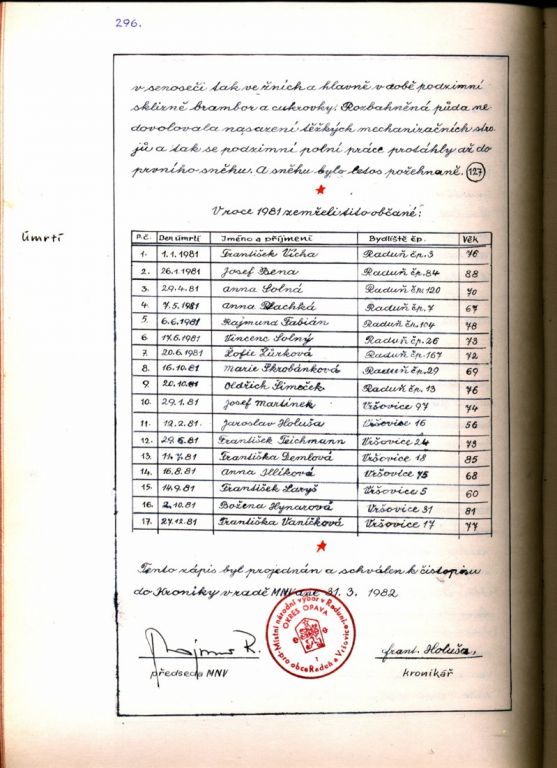 296.
v senoseči tak ve žních a hlavně v době podzimní
sklizně brambor a cukrovky. Rozbahněná půda ne
dovolovala nasazení těžkých mechanizačních stro
jů a tak se podzimní polní práce protáhly až do
prvního sněhu. A sněhu bylo letos požehnaně. 127
V roce 1981 zemřeli tito občané:
Úmrtí
P.č. Den úmrtí Jméno a příjmení Bydliště čp. Věk
1. 1.1.1981 František Vícha Raduň čp. 3 76
2. 26.1.1981 Josef Bena Raduň čp. 84 88
3. 29.4.81 Anna Solná Raduň 120 70
4. 7.5.1981 Anna Raduň čp. 7 67
5. 6.6.1981 Rajmund Fabián Raduň čp. 104 78
6. 17.6.1981 Vincenc Solný Raduň čp. 26 73
7. 20.6.1981 Žofie Žůrková Raduň čp. 167 72
8. 16.10.81 Marie Škrobánková Raduň čp. 29 69
9. 20.10.81 Oldřich Šimeček Raduň čp. 13 76
10. 29.1.81 Josef Martínek Vršovice 97 74
11. 12.2.81 Jaroslav Holuša Vršovice 16 56
12. 29.6.81 František Teichmann Vršovice 24
13. 14.7.81 Františka Demlová Vršovice 18 85
14. 16.8.81 Anna Illíková Vršovice 75 68
15. 14.9.81 František Laryš Vršovice 5 60
16. 2.10.81 Božena Hynarová Vršovice 31 81
17. 27.12.81 Františka Vaníčková Vršovice 17 77
Tento zápis byl projednán a schválen k čistopisu
do Kroniky v radě MNV dne 31. 3. 1982
Místní národní výbor v Raduni
pro obce Raduň a Vršovice
OKRES OPAVA
1
R.
frant. Holuša.
předseda MNV
kronikář